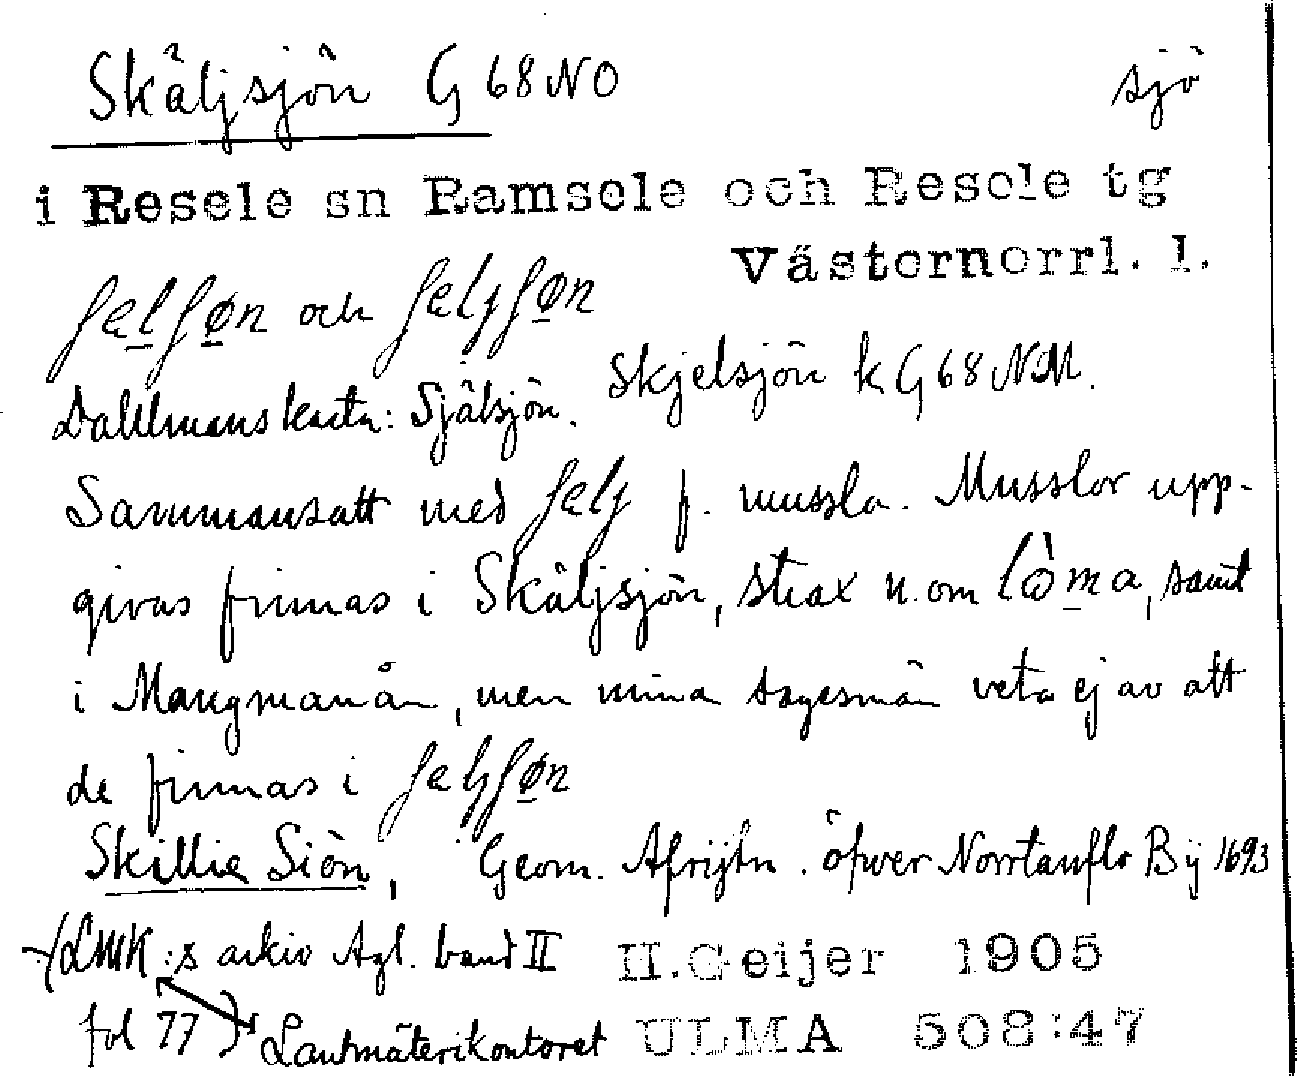 Skäljsjön G 68 NO sjö
i Resele sn Ramsele och Resele tg
Västernorrl. l.
ʃælʃøn och ʃæljʃøn
Dahlmans karta: Själsjön. Skjelsjön k G 68 NM.
Sammansatt med ʃælj f. mussla. Musslor upp-
givas finnas i Skäljsjön, strax n. om låma, samt
i Mångmanån, men mina sagesmän veta ej av att
de finnas i ʃæljʃøn
Skillie Siön, i Geom. Afrijtn. öfwer Norrtanflo Bÿ 1693
(LMK:s arkiv Ågl. band II H. Geijer 1905
fol 77) Lantmäterikontoret ULMA 508:47